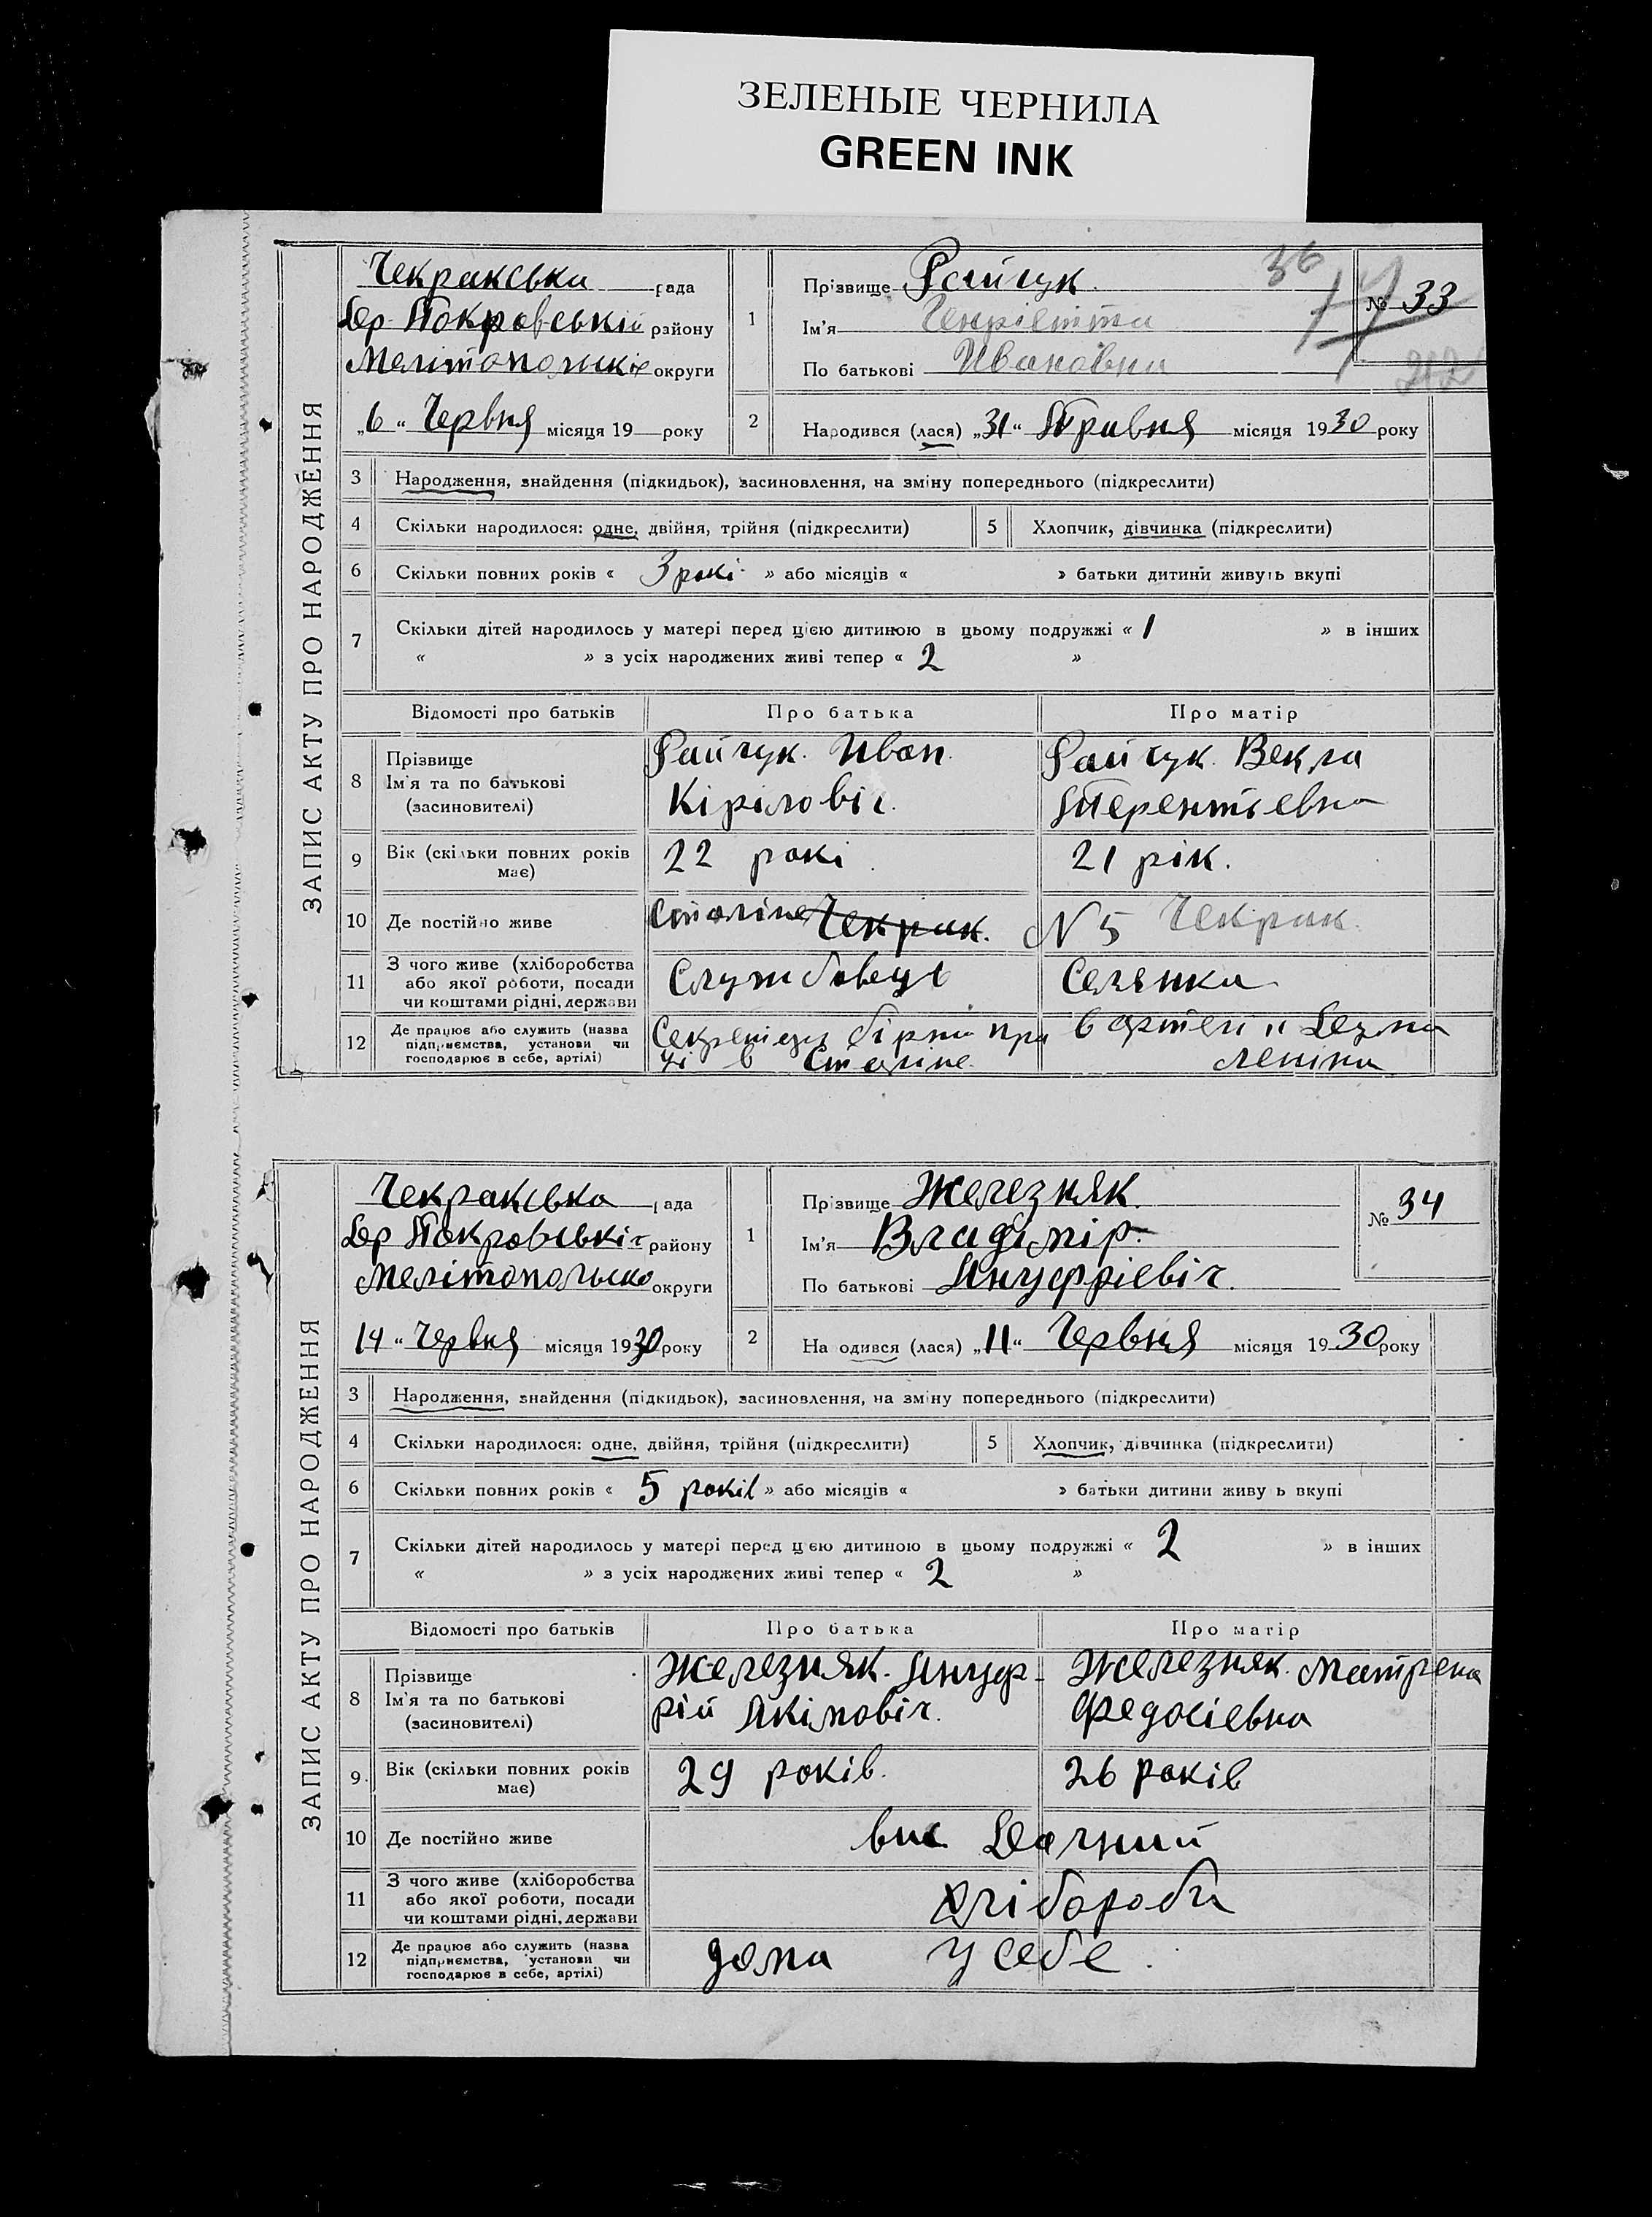 ЗЕЛЕНЫЕ ЧЕРНИЛА
GREEN INK
ЗАПИС АКТУ ПРО НАРОДЖЕННЯ
Чекракська рада
Вер Токровській району
Мелітопольскіе округи
„6“ Червня місяця 19 року
1
Прізвище Райчук.
Ім'я Генріетта
По батькові Ивановна
36
№ 33
2
Народився (лася) „31“ Травня місяця 1930 року
3 Народження, знайдення (підкидьок), засиновлення, на зміну попереднього (підкреслити)
4 Скільки народилося: одне, двійня, трійня (підкреслити) 5 Хлопчик, дівчинка (підкреслити)
6 Скільки повних років « 3 рокі » або місяців « » батьки дитини живуть вкупі
7 Скільки дітей народилось у матері перед цією дитиною в цьому подружжі « 1 » в інших
« » з усіх народжених живі тепер « 2 »
Відомості про батьків Про батька Про матір
8 Прізвище
Ім'я та по батькові
(засиновителі)
Райчук. Иван.
Кіріловіч.
Райчук. Векла
Терентьевна
9 Вік (скільки повних років має) 22 рокі 21 рік.
10 Де постійно живе Сталіне Чекрак. N 5 Чекрак.
11 З чого живе (хліборобства
або якої роботи, посади
чи коштами рідні, держави
Службовець Селянка
12 Де працює або служить (назва
підприємства, установи чи
господарює в себе, артілі)
Секретарь біржи пра
ці в Сталіне.
в артелі
Леніна
ЗАПИС АКТУ ПРО НАРОДЖЕННЯ
Чекракська рада
Вер Токровській району
Мелітопольско округи
14 “ Червня місяця 1930 року
1
Прізвище Железняк.
Ім'я Владімір.
По батькові Януфріевіч.
№ 34
2
Народився (лася) „11“ Червня місяця 1930 року
3 Народження, знайдення (підкидьок), засиновлення, на зміну попереднього (підкреслити)
4 Скільки народилося: одне, двійня, трійня (підкреслити) 5 Хлопчик, дівчинка (підкреслити)
6 Скільки повних років « 5 років » або місяців « » батьки дитини живу ь вкупі
7 Скільки дітей народилось у матері перед цією дитиною в цьому подружжі « 2 » в інших
« » з усіх народжених живі тепер « 2 »
Відомості про батьків Про батька Про матір
8 Прізвище
Ім'я та по батькові
(засиновителі)
Железняк. Януф-
рій Якімовіч.
Железняк. Матрена
Федосіевна
9. Вік (скільки повних років має) 29 років. 26 років
10 Де постійно живе вис. Дачний
11 З чого живе (хліборобства
або якої роботи, посади
чи коштами рідні, держави
хлібороби
12 Де працює або служить (назва
підприємства, установи чи
господарює в себе, артілі)
дома у себе.